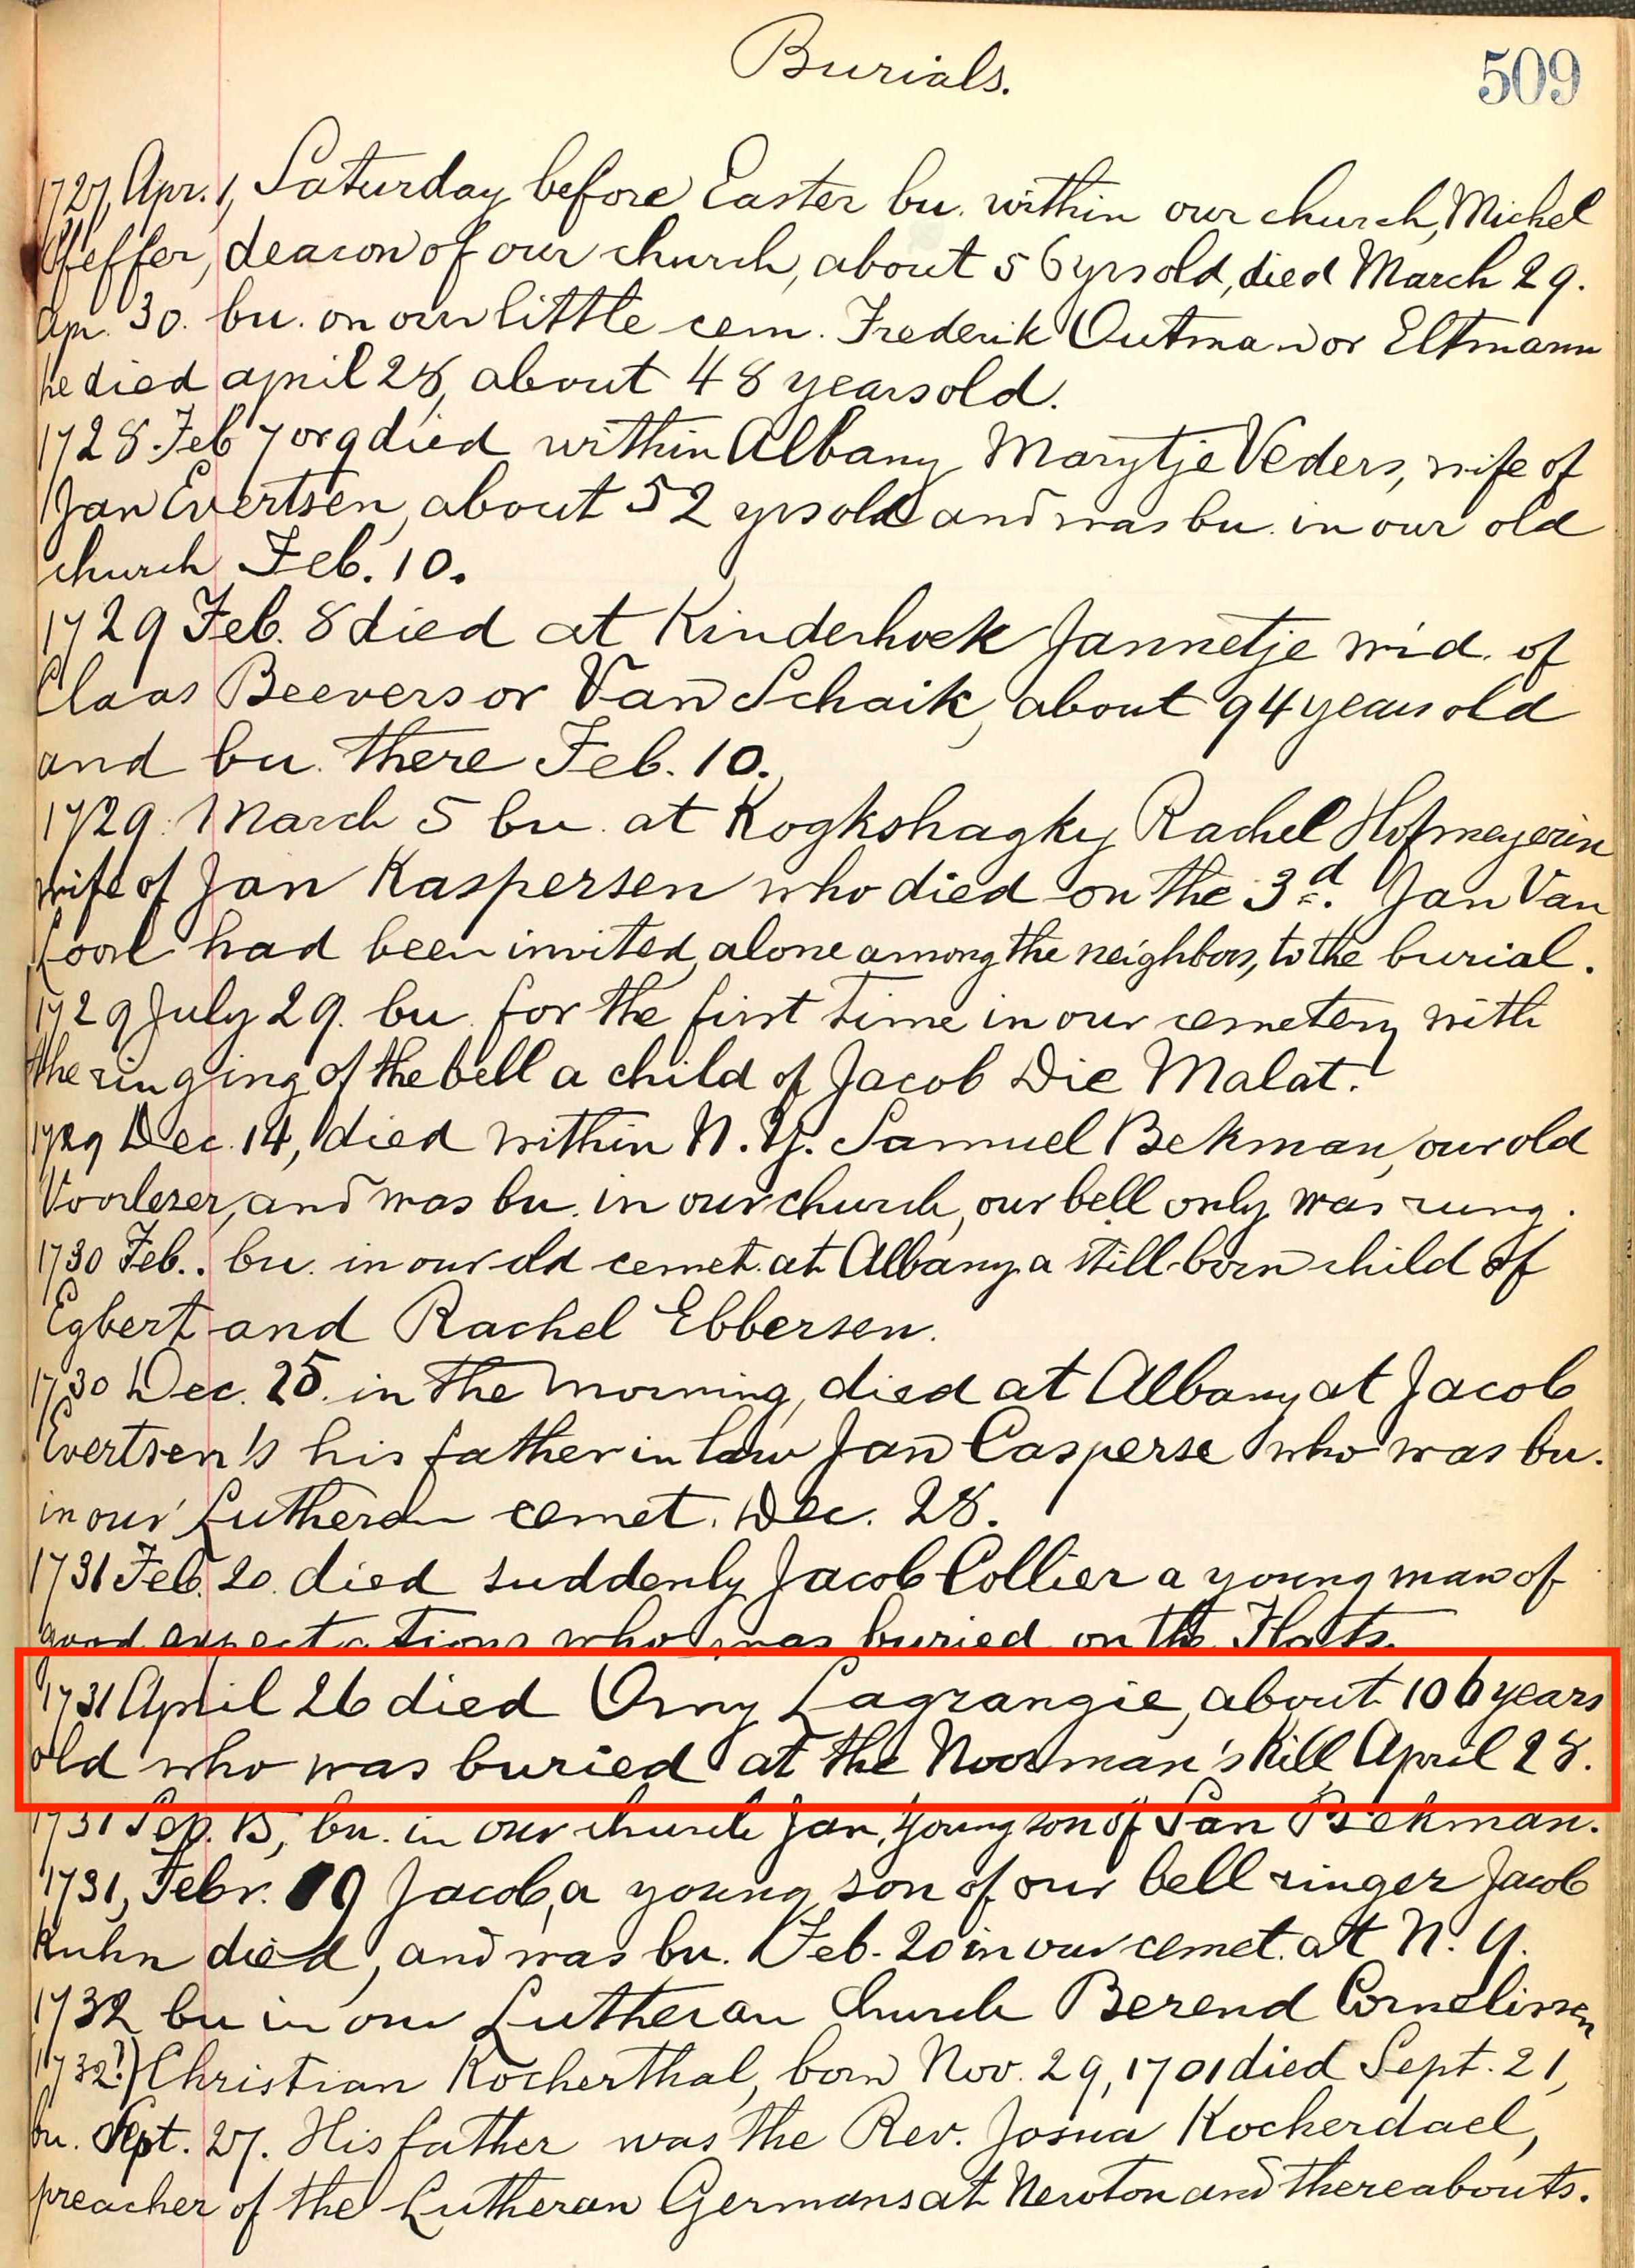 Burials.
509
1727, Apr. 1, Saturday before Easter bu. within our church, Michel
Pfeffer, deacon of our church, about 56 yrs old, died March 29.
Apr. 30. bu. on our little cem. Frederik Outman or Eltmann
he died april 28, about 48 years old.
1728. Feb 7 or 9 died within Albany Marytje Veders, wife of
Jan Evertsen, about 52 yrs old and was bu. in our old
church Feb. 10.
1729 Feb. 8 died at Kinderhoek Jannetje wid. of
Claas Beevers or Van Schaik, about 94 years old
and bu. there Feb. 10.
1729. March 5 bu. at Kogkshagky Rachel Hofmeyerin
wife of Jan Kaspersen who died on the 3d. Jan Van
Loon had been invited, alone among the neighbors, to the burial.
1729 July 29. bu. for the first time in our cemetery with
the ringing of the bell a child of Jacob Die Malat.
1729 Dec. 14, died within N. Y. Samuel Bekman, our old
Voorlezer, and was bu. in our church, our bell only was rung.
1730 Feb.. bu. in our old cemet. at Albany a still-born child of
Egbert and Rachel Ebbersen.
1730 Dec. 25. in the morning, died at Albany at Jacob
Evertsen's his father in law Jan Casperse who was bu.
in our Lutheran cemet. Dec. 28.
1731 Feb. 20. died suddenly Jacob Collier a young man of
good expectations who was buried on the Flats.
1731 April 26 died Omy Lagrangie, about 106 years
old who was buried at the Noorman's Kill April 28.
1731 Sep. 15, bu. in our church Jan, young son of San Bekman.
1731, Febr. 19 Jacob, a young son of our bell ringer Jacob
Kuhn died, and was bu. Feb. 20 in our cemet. at N. Y.
1732 bu in our Lutheran Church Berend Cornelissen
1732?) Christian Kocherthal, born Nov. 29, 1701 died Sept. 21,
bu. Sept. 27. His father was the Rev. Josua Kockerdael,
preacher of the Lutheran Germans at Newton and thereabouts.